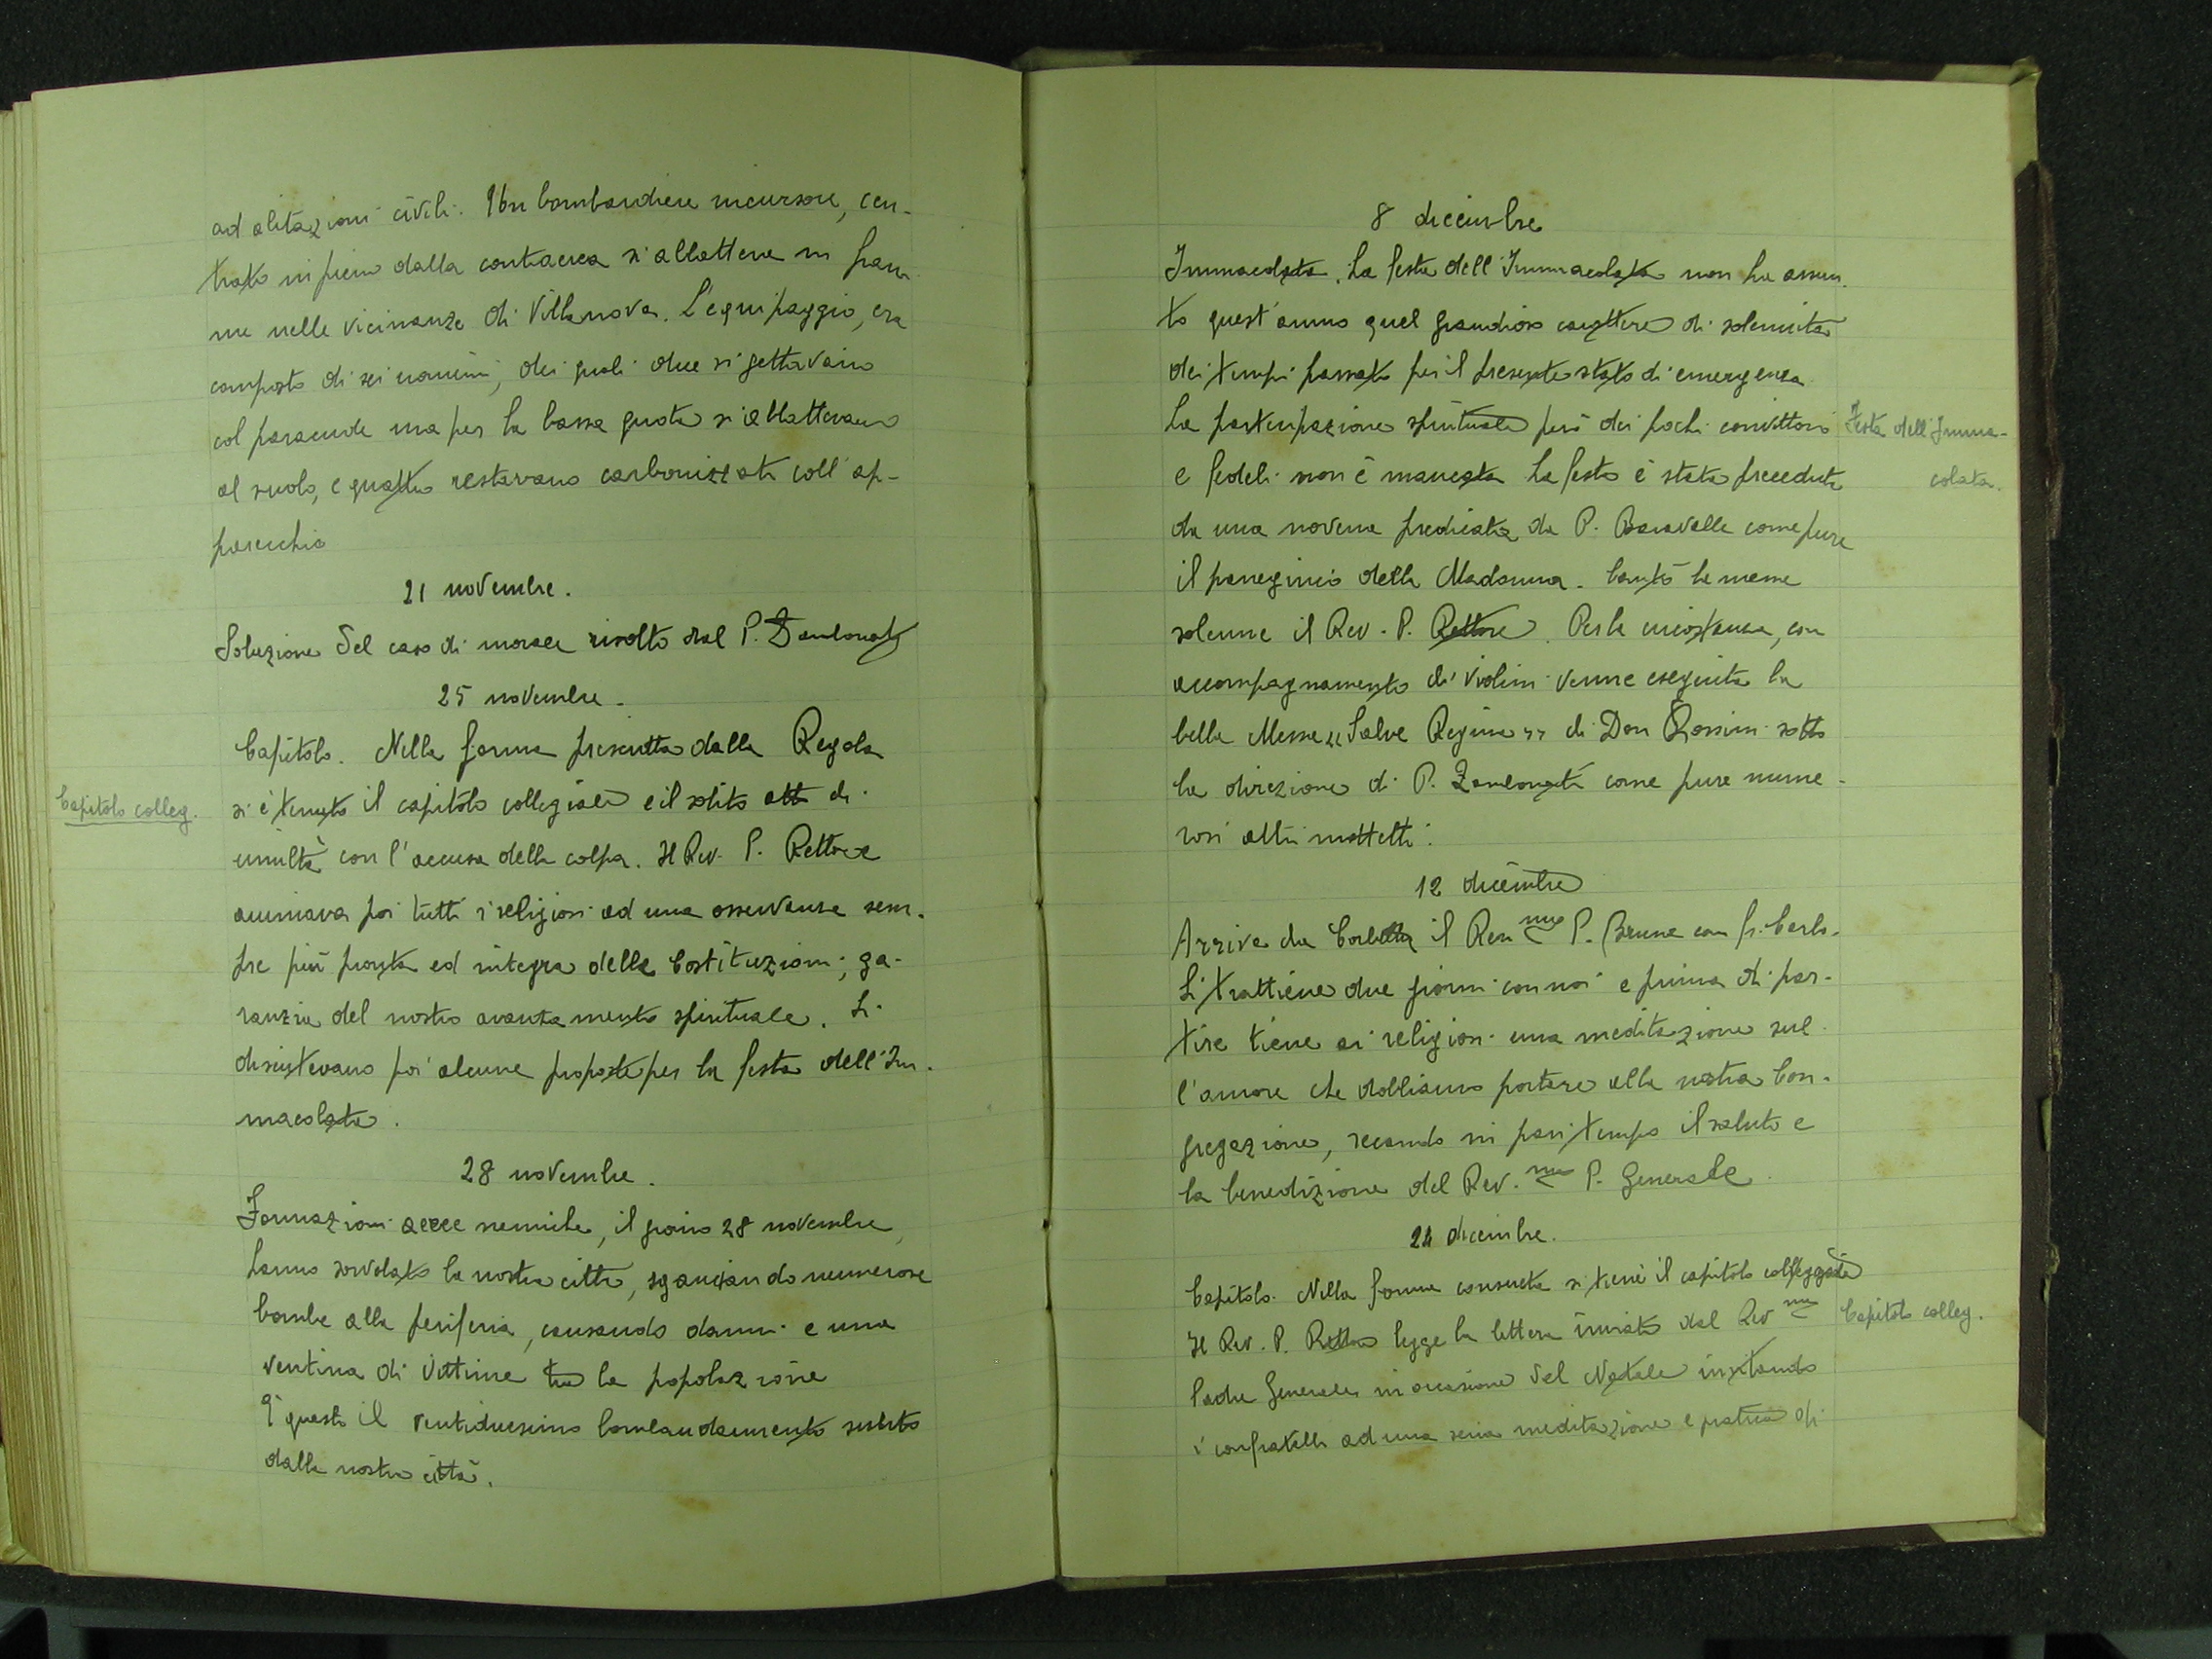 ad abitazioni civili. Un bombardiere incursore, cen-
trato in pieno dalla contraerea si abbatteva in fiam
me nelle vicinanze di Villanova. L'equipaggio, era
composto di sei uomini, dei quali due si gettavano
col paracude ma per la bassa quota si abbattevano
al suolo, e quattro restavano carbonizzati coll'ap-
parecchio
21 novembre.
Soluzione del caso di morale risolto dal P. Zambonati
25 novembre.
Capitolo. Nella forma prescritta dalla Regola
Capitolo colleg.
si è tenuto il capitolo collegiale e il solito atto di
umiltà con l'accusa della colpa. Il Rev. P. Rettore
animava poi tutti i religiosi ad una osservanza sem-
pre più pronta ed integra delle Costituzioni; ga-
ranzia del nostro avanzamento spirituale. Si
discutevano poi alcune proposte per la festa dell'Im-
macolata.
28 novembre.
Formazioni aeree nemiche, il giorno 28 novembre,
hanno sorvolato la nostra città, sganciando numerose
bombe alla periferia, causando danni e una
ventina di vittime tra la popolazione
È questo il ventiduesimo bombardamento subito
dalla nostra città.
8 dicembre
Immacolata. La festa dell'Immacolata non ha assun-
to quest'anno quel grandioso carattere di solennità
dei tempi passati per il presente stato di emergenza
La partecipazione spirituale però dei pochi convittori
Festa dell'Imma-
colata.
e fedeli non è mancata La festa è stata preceduta
da una novena predicata da P. Baravalle come pure
il panegirico della Madonna. Cantò la messa
solenne il Rev. P. Rettore. Per la circostanza, con
accompagnamento di violini venne eseguita la
bella Messa "Salve Regina" di Don Rossini sotto
la direzione di P. Zambonati come pure nume-
rosi altri mottetti.
12 dicembre
Arriva da Corbetta il Rev mo P. Brusa con fr. Carlo.
Si trattiene due giorni con noi e prima di par-
tire tiene ai religiosi una meditazione sul-
l'amore che dobbiamo portare alla nostra Con-
gregazione, recando in pari tempo il saluto e
la benedizione del Rev. mo P. Generale.
24 dicembre.
Capitolo. Nella forma consueta si tiene il capitolo collegiale
Il Rev. P. Rettore legge la lettera inviata dal Rev mo
Capitolo colleg.
Padre Generale in occasione del Natale invitando
i confratelli ad una seria meditazione e pratica di